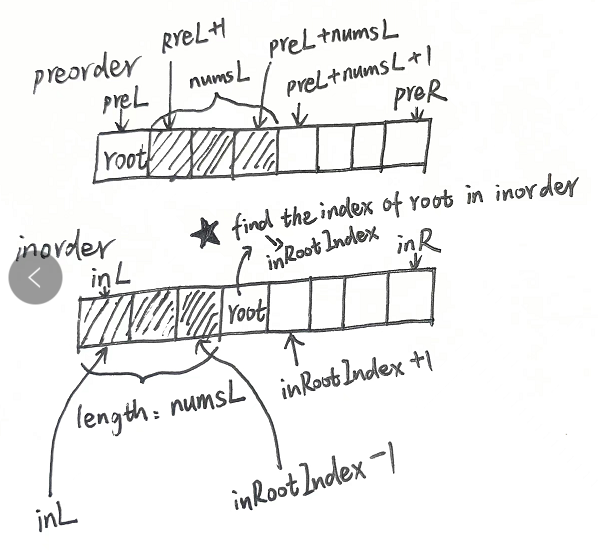 preL+1
preL+numsL
preorder
numsL
preL+numsL+1
preL
preR
root
★ find the index of root in inorder
inRootIndex
inorder
inR
inL
root
inRootIndex+1
length: numsL
inRootIndex-1
inL